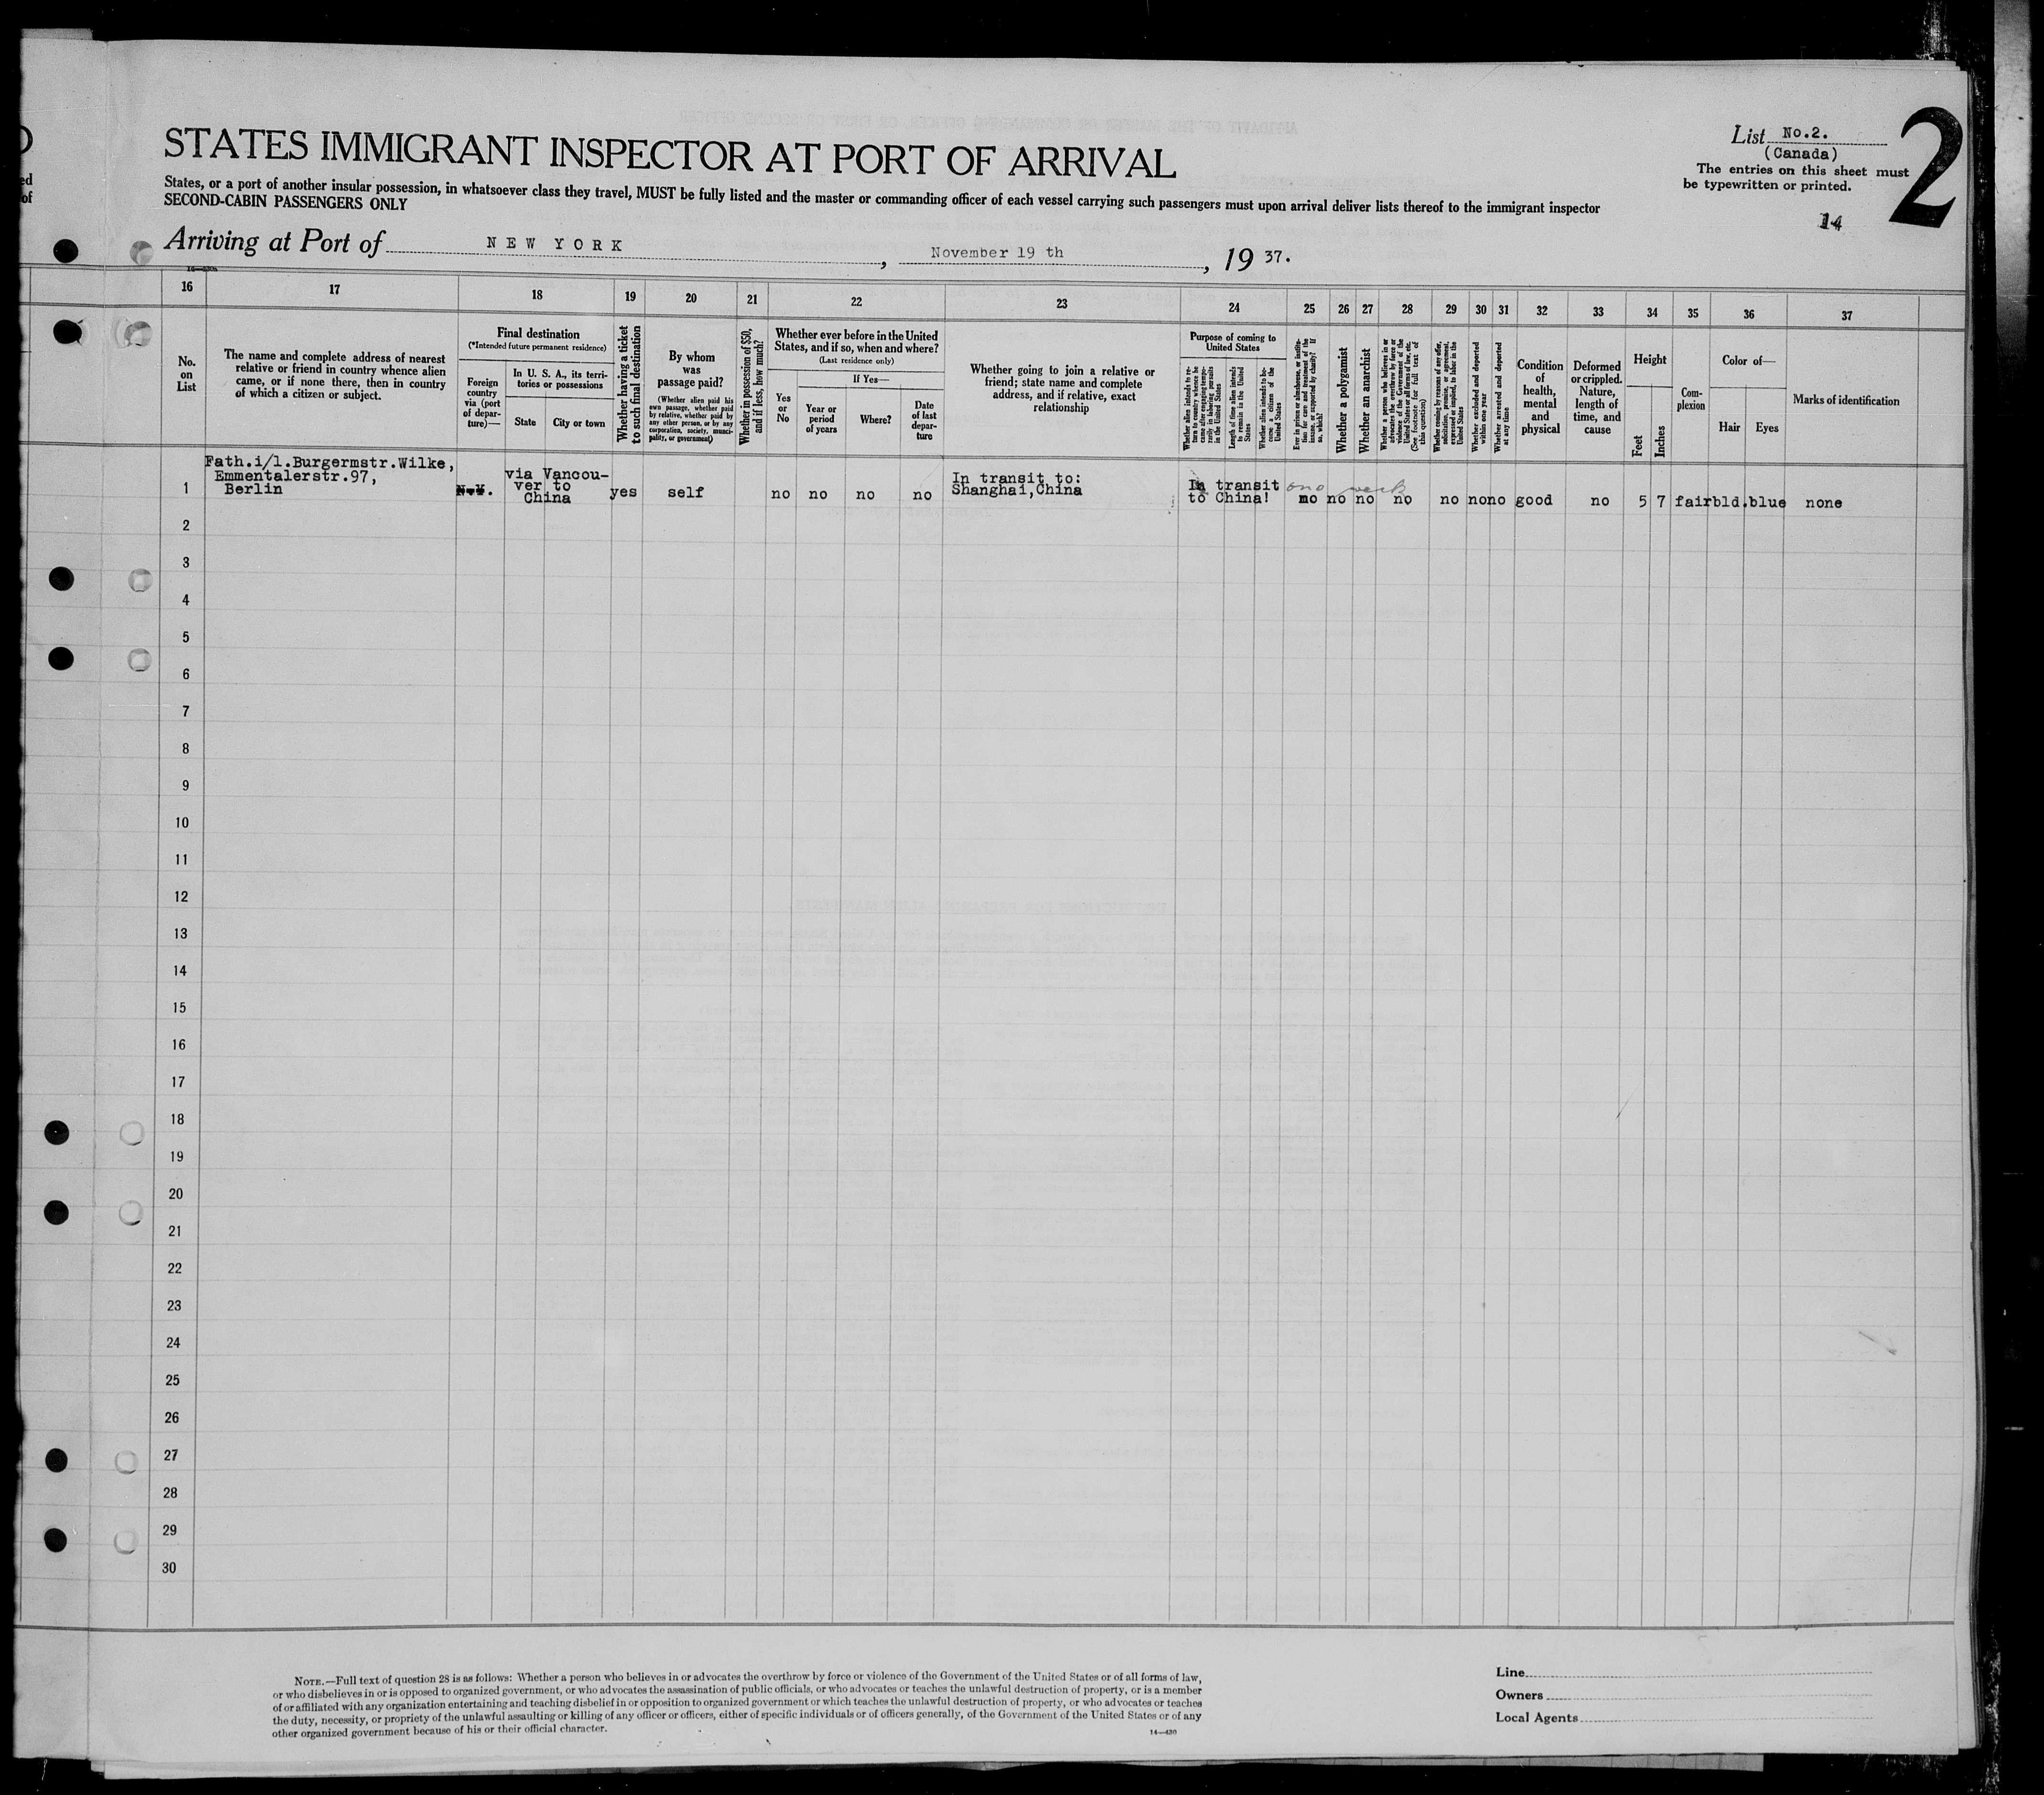 STATES IMMIGRANT INSPECTOR AT PORT OF ARRIVAL
States, or a port of another insular possession, in whatsoever class they travel, MUST be fully listed and the master or commanding officer of each vessel carrying such passengers must upon arrival deliver lists thereof to the immigrant inspector
SECOND-CABIN PASSENGERS ONLY
List No.2.
(Canada)
The entries on this sheet must
be typewritten or printed.
2
14
Arriving at Port of NEW YORK, November 19 th, 19 37.
16 17 18 19 20 21 22 23 24 25 26 27 28 29 30 31 32 33 34 35 36 37
No.
on
List
The name and complete address of nearest
relative or friend in country whence alien
came, or if none there, then in country
of which a citizen or subject.
Final destination
(*Intended future permanent residence)
Foreign
country
via (port
of depar-
ture)—
In U. S. A., its terri-
tories or possessions
State City or town
Whether having a ticket
to such final destination
By whom
was
passage paid?
(Whether alien paid his
own passage, whether paid
by relative, whether paid by
any other person, or by any
corporation, society, munci-
pality, or government)
Whether in possession of $50,
and if less, how much?
Whether ever before in the United
States, and if so, when and where?
(Last residence only)
Yes
or
No
If Yes—
Year or
period
of years
Where?
Date
of last
depar-
ture
Whether going to join a relative or
friend; state name and complete
address, and if relative, exact
relationship
Purpose of coming to
United States
Whether alien intends to re-
turn to country whence he
came after engaging tempo-
rarily in laboring pursuits
in the United States
Length of time alien intends
to remain in the United
States
Whether alien intends to be-
come a citizen of the
United States
Ever in prison or almshouse, or institu-
tion for care and treatment of the
insane, or supported by charity? If
so, which?
Whether a polygamist
Whether an anarchist
Whether a person who believes in or
advocates the overthrow by force or
violence of the Government of the
United States or all forms of law, etc.
(See footnote for full text of
this question)
Whether coming by reasons of any offer,
solicitation, promise, or agreement,
expressed or implied, to labor in the
United States
Whether excluded and deported
within one year
Whether arrested and deported
at any time
Condition
of
health,
mental
and
physical
Deformed
or crippled.
Nature,
length of
time, and
cause
Height
Feet Inches
Com-
plexion
Color of—
Hair Eyes
Marks of identification
Fath.i/l.Burgermstr.Wilke,
Emmentalerstr.97,
Berlin
1 N.Y. via Vancou-
ver to
China
yes self no no no no
In transit to:
Shanghai,China
In transit
to China!
one week
no no no no no no no good no 5 7 fair bld. blue none
2
3
4
5
6
7
8
9
10
11
12
13
14
15
16
17
18
19
20
21
22
23
24
25
26
27
28
29
30
NOTE.—Full text of question 28 is as follows: Whether a person who believes in or advocates the overthrow by force or violence of the Government of the United States or of all forms of law,
or who disbelieves in or is opposed to organized government, or who advocates the assassination of public officials, or who advocates or teaches the unlawful destruction of property, or is a member
of or affiliated with any organization entertaining and teaching disbelief in or opposition to organized government or which teaches the unlawful destruction of property, or who advocates or teaches
the duty, necessity, or propriety of the unlawful assaulting or killing of any officer or officers, either of specific individuals or of officers generally, of the Government of the United States or of any
other organized government because of his or their official character.
14—430
Line
Owners
Local Agents